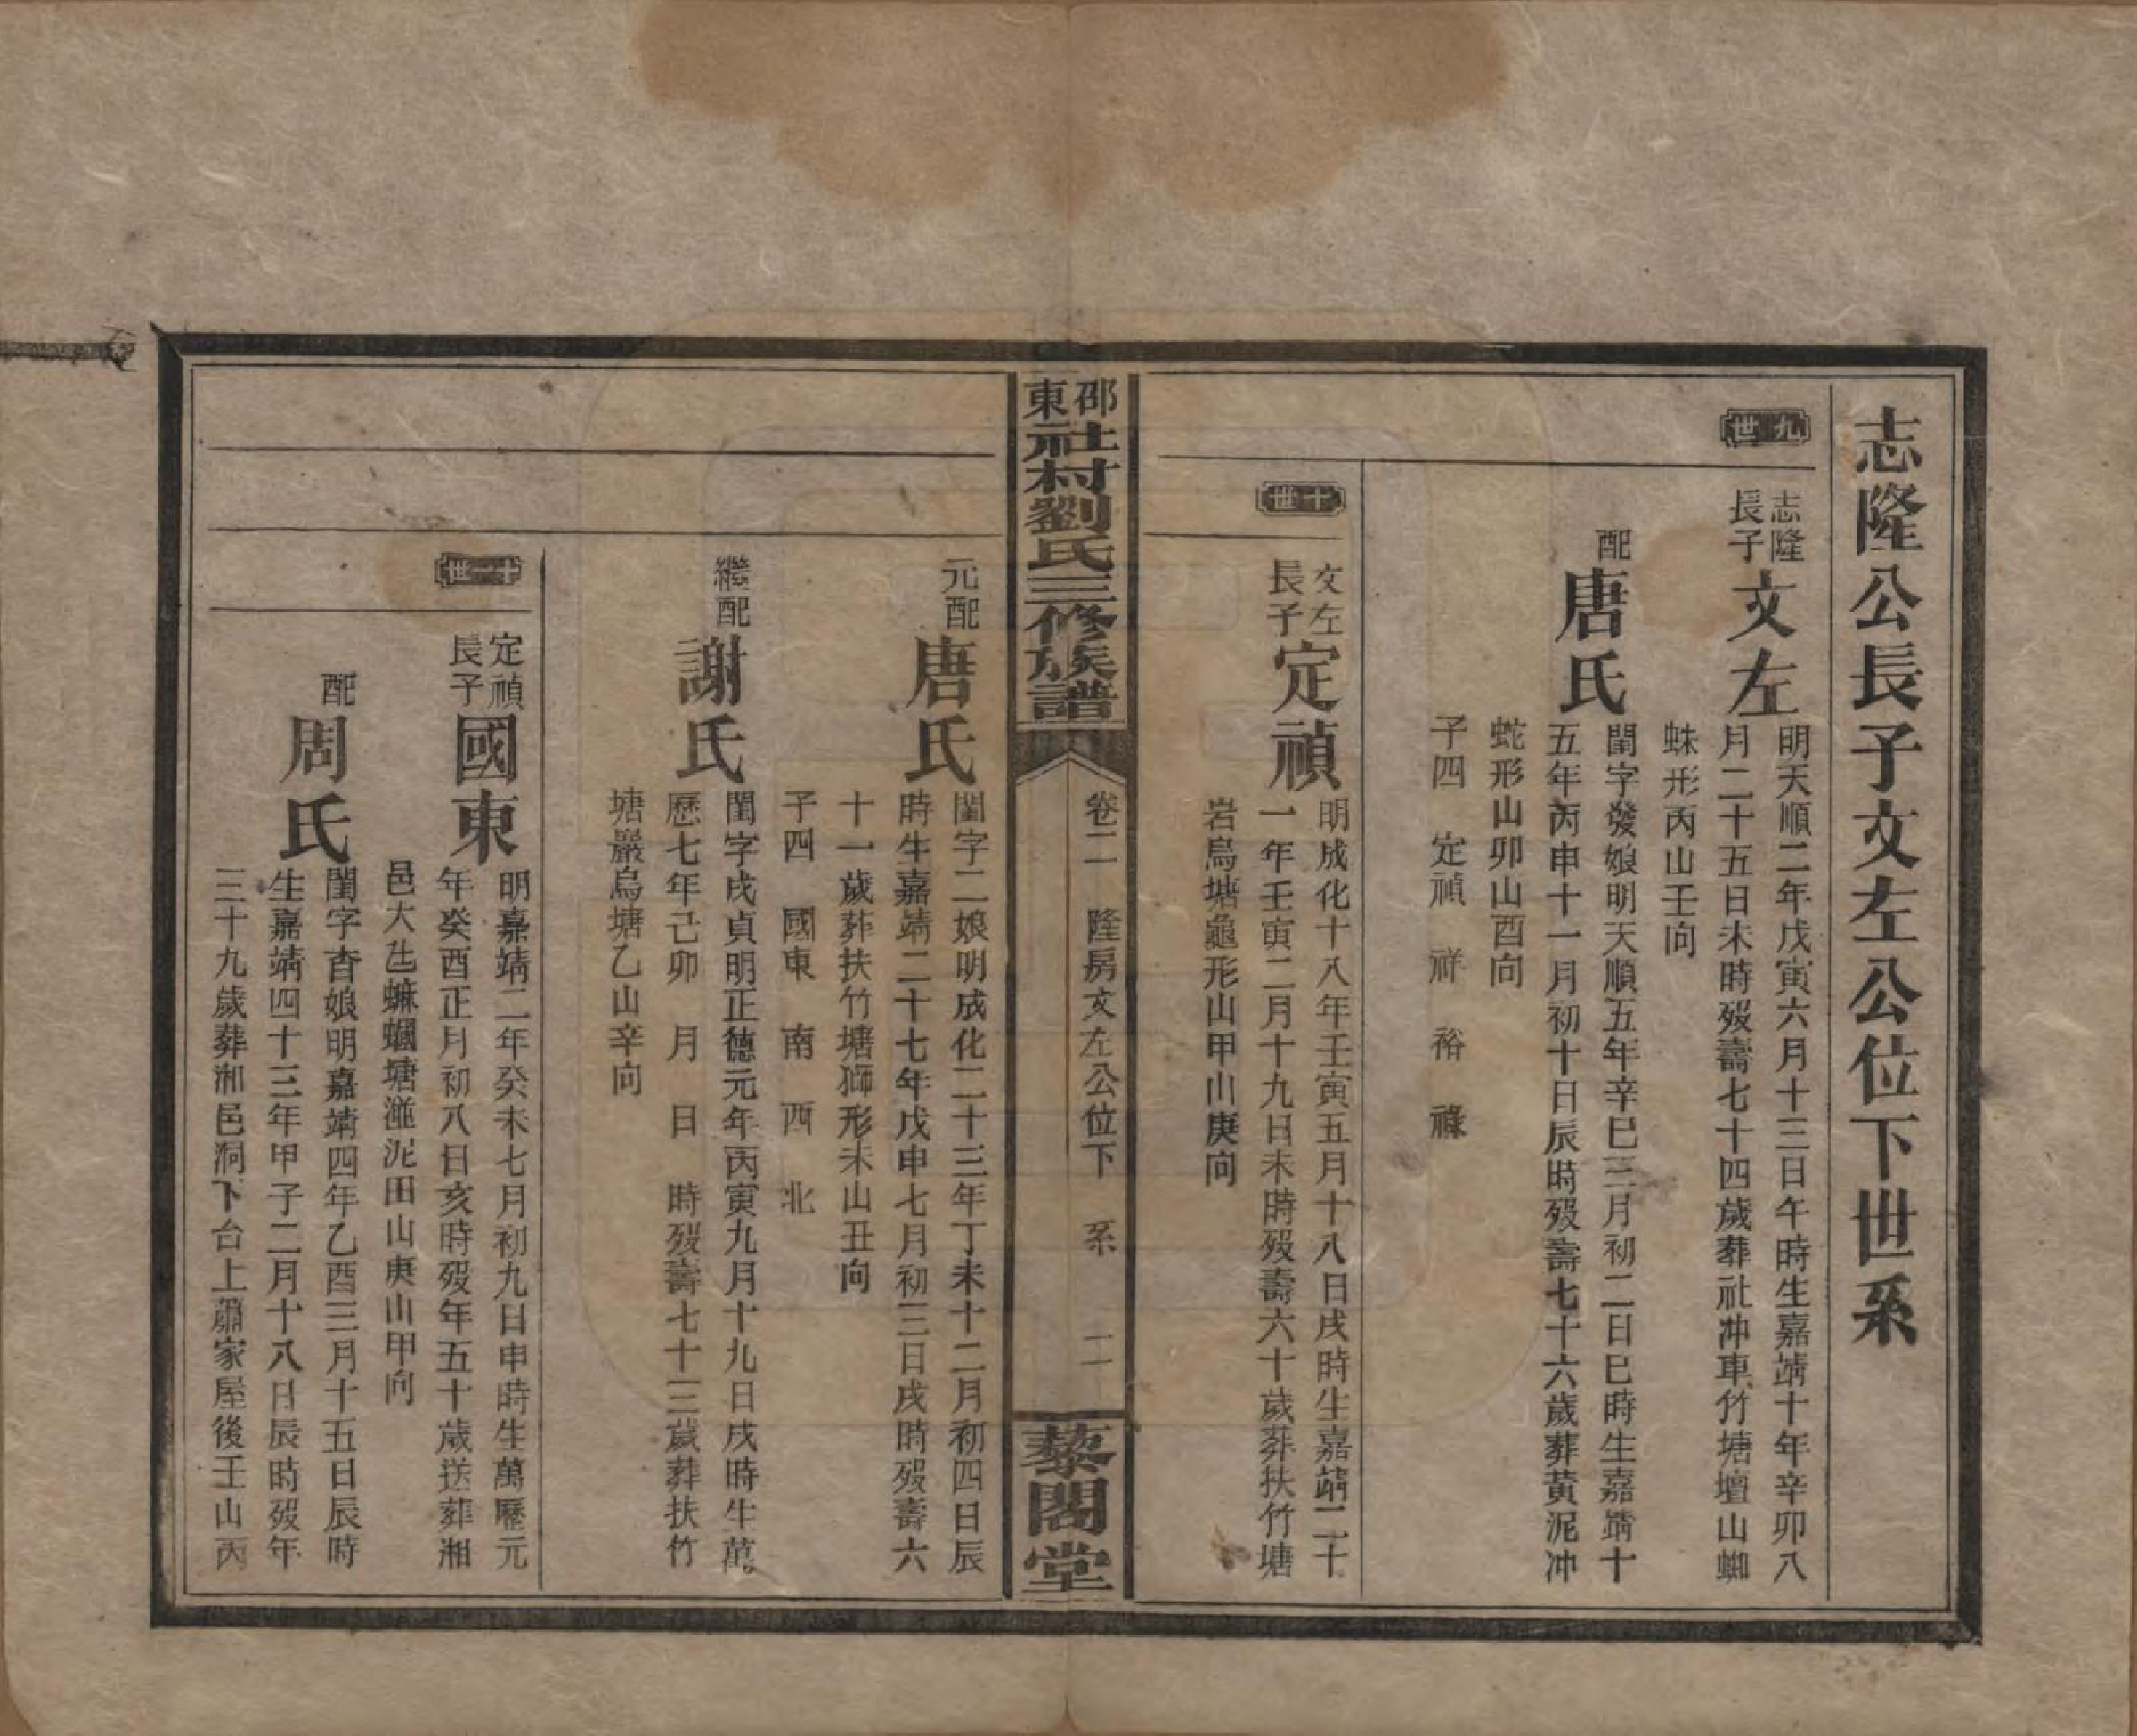 志隆公長子文左公位下世系
九世
志隆
長子
文左
明天順二年戊寅六月十三日午時生嘉靖十年辛卯八
月二十五日未時歿壽七十四歲葬社冲車竹塘壇山蜘
蛛形丙山壬向
配
唐氏
閨字發娘明天順五年辛巳三月初二日巳時生嘉靖十
五年丙申十一月初十日辰時歿壽七十六歲葬黃泥冲
蛇形山卯山酉向
子四 定禎 祥 裕 祿
十世
文左
長子
定禎
明成化十八年壬寅五月十八日戌時生嘉靖二十
一年壬寅二月十九日未時歿壽六十歲葬扶竹塘
岩烏塘龜形山甲山庚向
邵東社村劉氏三修族譜
卷二 隆房文左公位下 系 二
藜閣堂
元配
唐氏
閨字二娘明成化二十三年丁未十二月初四日辰
時生嘉靖二十七年戊申七月初三日戌時歿壽六
十一歲葬扶竹塘獅形未山丑向
子四 國東 南 西 北
繼配
謝氏
閨字戌貞明正德元年丙寅九月十九日戌時生萬
歷七年己卯 月 日 時歿壽七十三歲葬扶竹
塘巖烏塘乙山辛向
十一世
定禎
長子
國東
明嘉靖二年癸未七月初九日申時生萬歷元
年癸酉正月初八日亥時歿年五十歲送葬湘
邑大 塘 泥田山庚山甲向
配
周氏
閨字 娘明嘉靖四年乙酉三月十五日辰時
生嘉靖四十三年甲子二月十八日辰時歿年
三十九歲葬湘邑洞下台上蕭家屋後壬山丙